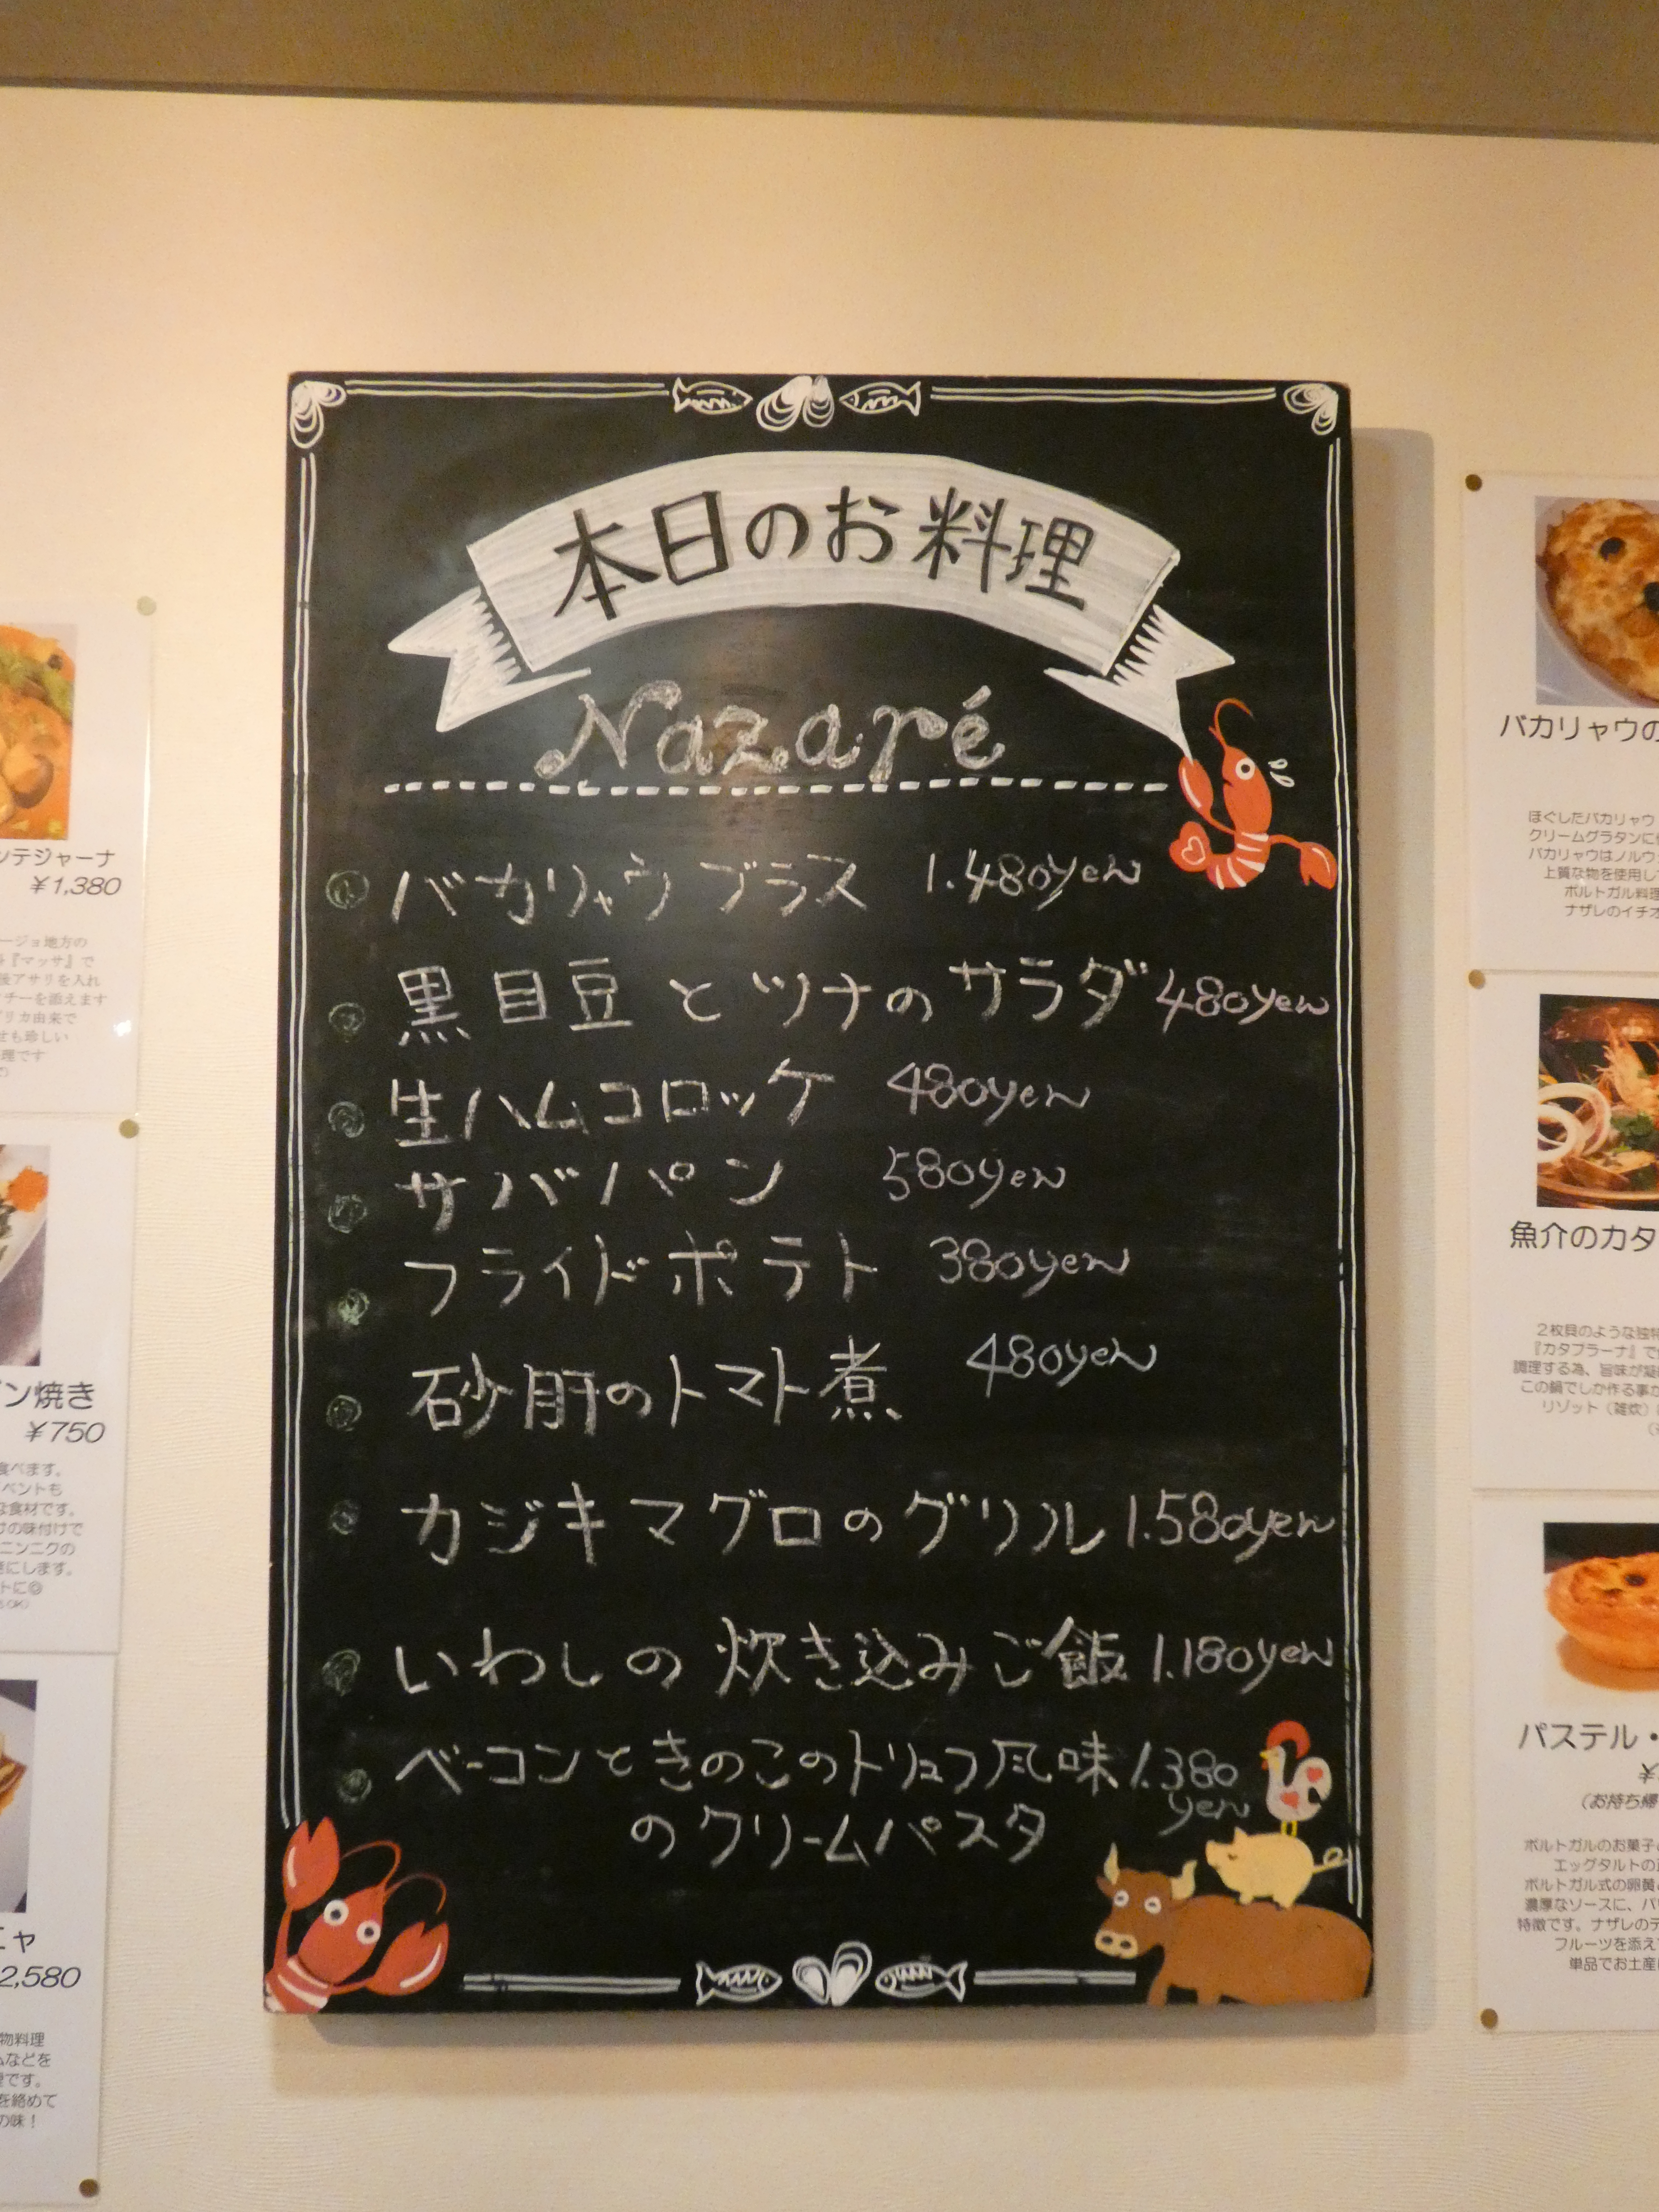 本日のお料理
Nazaré
バカリャウ ブラス 1.480yen
黒目豆とツナのサラダ 480yen
生ハムコロッケ 480yen
サバパン 580yen
フライドポテト 380yen
砂肝のトマト煮 480yen
カジキマグロのグリル 1.580yen
いわしの炊き込みご飯 1.180yen
ベーコンときのこのトリュフ風味 1.380
yen
のクリームパスタ
ンテジャーナ
¥1,380
ージョ地方の
『マッサ』で
後アサリを入れ
チーを添えます
リカ由来で
せも珍しい
理です
ン焼き
¥750
食べます。
ベントも
な食材です。
けの味付けで
ニンニクの
にします。
トに◎
ニャ
2,580
物料理
ムなどを
理です。
を絡めて
の味！
バカリャウの
ほぐしたバカリャウ
クリームグラタンに
バカリャウはノルウ
上質な物を使用し
ポルトガル料理
ナザレのイチオ
魚介のカタ
２枚貝のような独特
『カタプラーナ』で
調理する為、旨味が凝
この鍋でしか作る事が
リゾット（雑炊）
パステル・
¥
（お持ち帰
ポルトガルのお菓子
エッグタルトの
ポルトガル式の卵黄
濃厚なソースに、パ
特徴です。ナザレのデ
フルーツを添え
単品でお土産